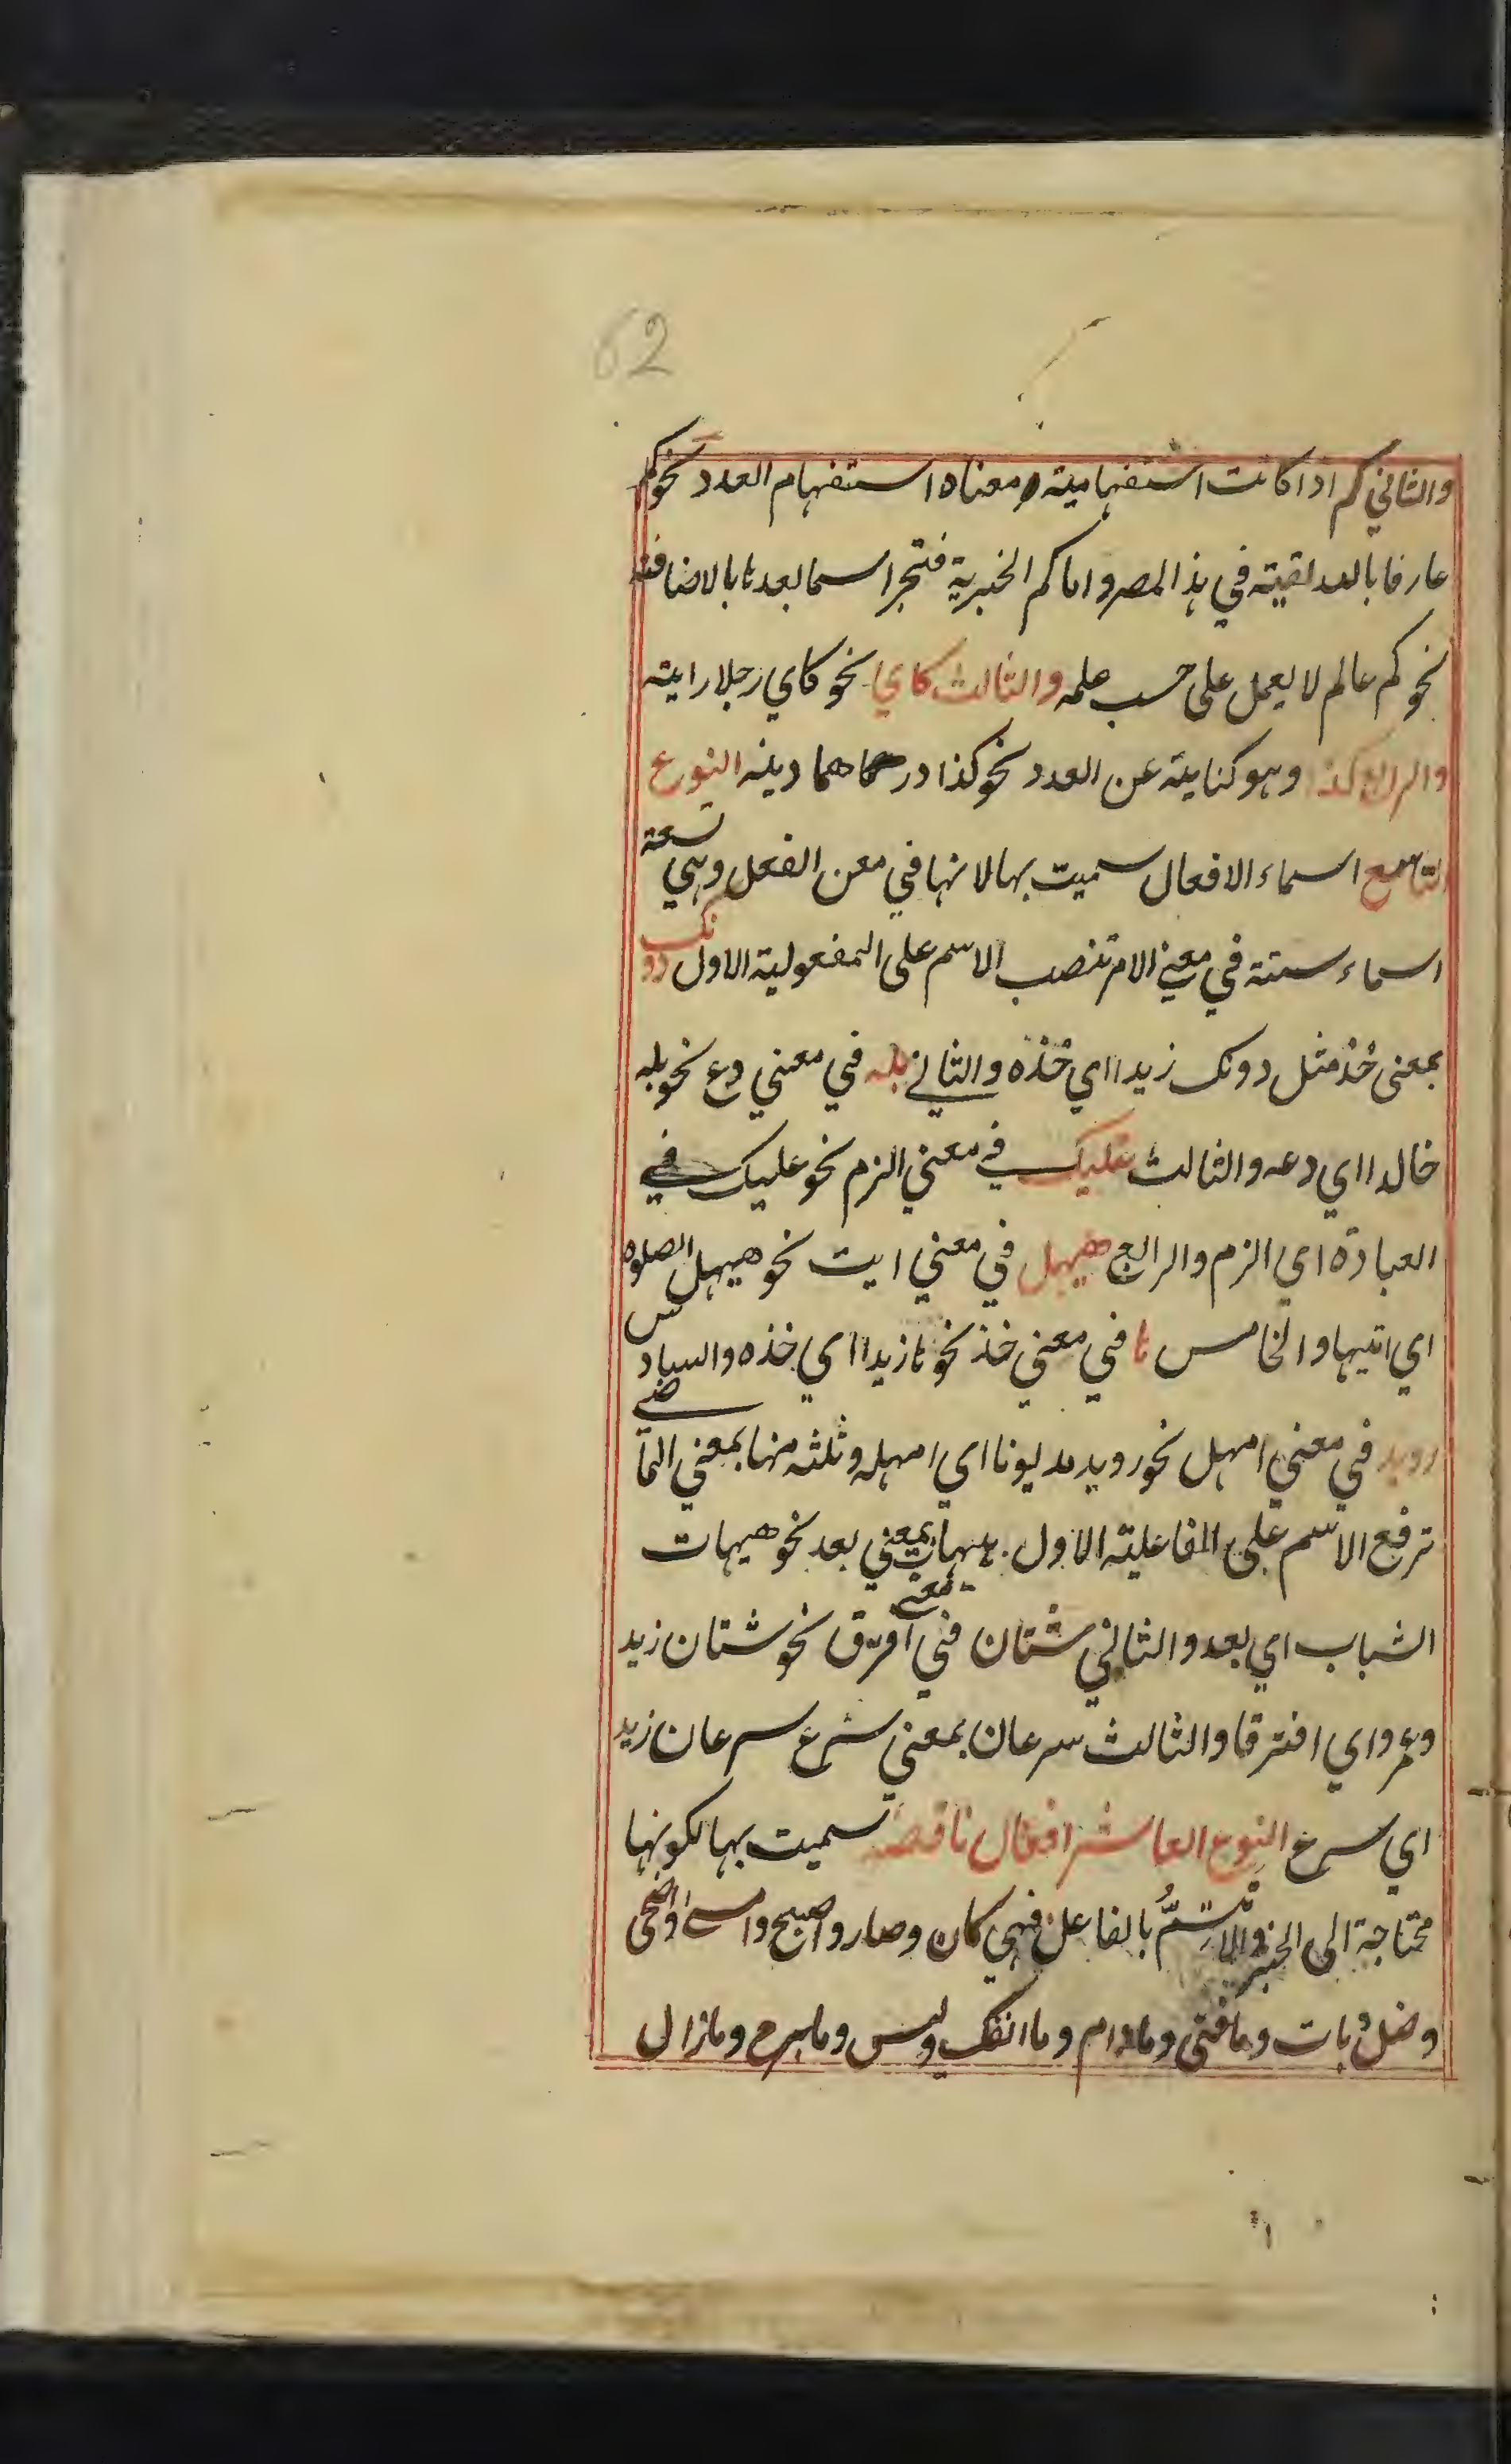 62
والثاني كم اذا كانت استفهامية ومعناه استفهام العدد نحو كم
عارفا بالله لقيته في هذا المصر واما كم الخبرية فتجر اسما بعدها بالاضافة
نحو كم عالم لا يعمل على حسب علمه والثالث كاي نحو كاي رجلا رايته
والرابع كذا وهو كناية عن العدد نحو كذا درهما دينه النوع
التاسع اسماء الافعال سميت بها لانها في معن الفعل وهي تسعة
اسماء ستة في معنى الامر تنصب الاسم على المفعولية الاول دونك
بمعنى خُذ مثل دونك زيدا اي خُذه والثاني بله في معني دع نحو بله
خالدا اي دعه والثالث عليك في معني الزم نحو عليك في
العبادة اي الزم والرابع حيهل في معني ايت نحو حيهل الصلوه
اي ايتيها والخامس ها في معني خذ نحو ها زيدا اي خذه والسادس
رويد في معني امهل نحو رويد مديونا اي امهله وثلثه منها بمعني الماضي
ترفع الاسم على الفاعلية الاول هيهات بمعني بعد نحو هيهات
الشباب اي بعد والثاني شتان في معنى افترق نحو شتان زيد
وعمرو اي افترقا والثالث سرعان بمعني سرع سرعان زيد
اي سرع النوع العاشر افعال ناقصة سميت بها لكونها
محتاجة الى الخبر ولا تتمُّ بالفاعل فهي كان وصار واصبح وامسى واضحى
وضل وبات وما فتى وما دام وما انفك وليس وما برح وما زال